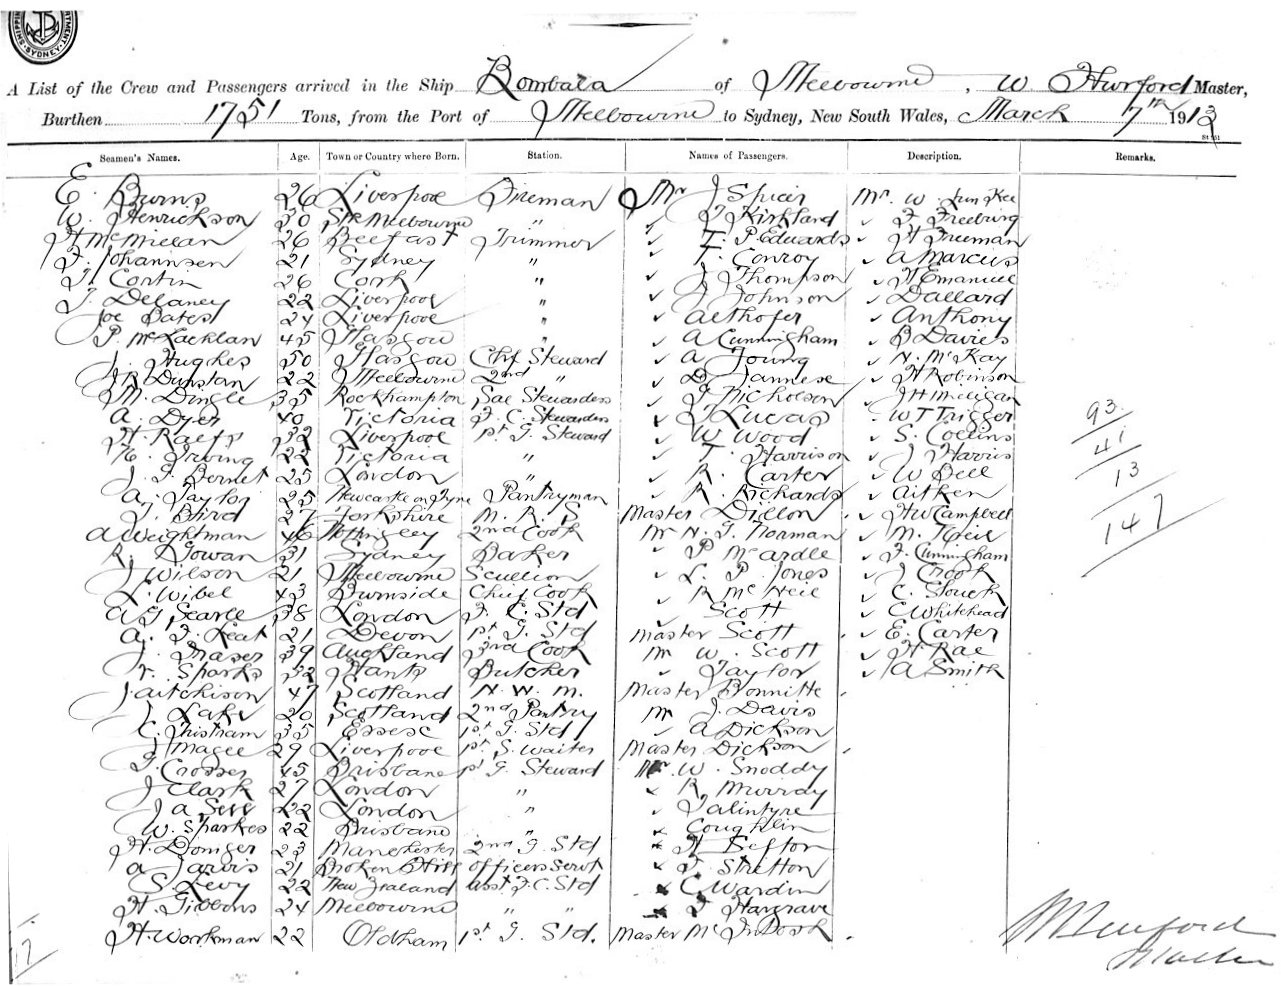 SYDNEY
A List of the Crew and Passengers arrived in the Ship Bombala of Melbourne, W Hurford Master,
Burthen 1751 Tons, from the Port of Melbourne to Sydney, New South Wales, March 7th 1913
Seamen's Names. Age. Town or Country where Born. Station. Names of Passengers. Description. Remarks.
E. Burns 26 Liverpool Fireman Mr J Spicer Mr. W.
W. Henrickson 30 Sth Melbourne " " T Kirkland " F Freeburg
H McMillan 26 Belfast Trimmer " T. P Edwards " H Freeman
F. Johannsen 21 Sydney " " T. Conroy " A Marcus
H. Cortin 26 Cork " " J Thompson " H Emanuel
T. Delaney 22 Liverpool " " J Johnson " Dallard
Joe Bates 24 Liverpool " " Althofer " Anthony
P. McLachlan 45 Glasgow " " A Cunningham " B Davies
J. Hughes 50 Glasgow Chf Steward " A Young " N. McKay
J R Dunstan 22 Melbourne 2nd " " D Jannese " H Robinson
M. Dingle 35 Rockhampton Sal Stewardess " F Nicholson " J H Milligan
A. Dyer 40 Victoria F. C. Stewardess " T Lucas " W T Trigger
H. Raets 32 Liverpool 1st G. Steward " W Wood " S. Collins 93
Irving 22 Victoria " " T. Harrison " J Harris 41
J. F. Bernet 25 London " " R. Carter " W Bell 13
A. Taylor 25 Newcastle on Tyne Pantryman " R. Richards " Aitken
T. Bird 27 Yorkshire M. R. S Master Dillon " H W Campbell 147
A Weightman 46 2nd Cook Mr N. G. Norman " M. Kneil
R. Gowan 31 Sydney Baker " P McArdle " F. Cunningham
J Wilson 21 Melbourne Scullion " L. P. Jones " J Crook
L. Wibel 43 Burnside Chief Cook " R McNeil " C.
A G Searle 38 London F. C. Std " Scott " C Whitehead
A. F. Leat 21 Devon 1st G. Std Master Scott " E. Carter
J. Fraser 39 Auckland 3rd Cook Mr W. Scott " H Rae
F. Sparks 32 Hants Butcher " Taylor " A Smith
J Aitchison 47 Scotland N. W. M. Master Bonnitte
J Lake 20 Scotland 2nd Pantry Mr J. Davis
C. Thistham 35 Essex 1st G. Std " A Dickson
J Magee 29 Liverpool 1st S. Waiter Master Dickson
F. Crosser 45 Brisbane 1st G. Steward Mr W. Snoddy
J Clark 27 London " " R. Murray
J A Sell 22 London " " Jalintyre
W. Sparkes 22 Brisbane " " Coughlin
H. Donger 23 Manchester 2nd G. Std " H Sefton
A Jarvis 21 Broken Hill Officers Servt " F Stretton
S. Levy 22 New Zealand Asst F. C. Std " C Wardin
H. Gibbons 24 Melbourne " " " F Hargrave
H. Workman 22 Oldham 1st G. Std. Master McIntosh
W Hurford
Master
17